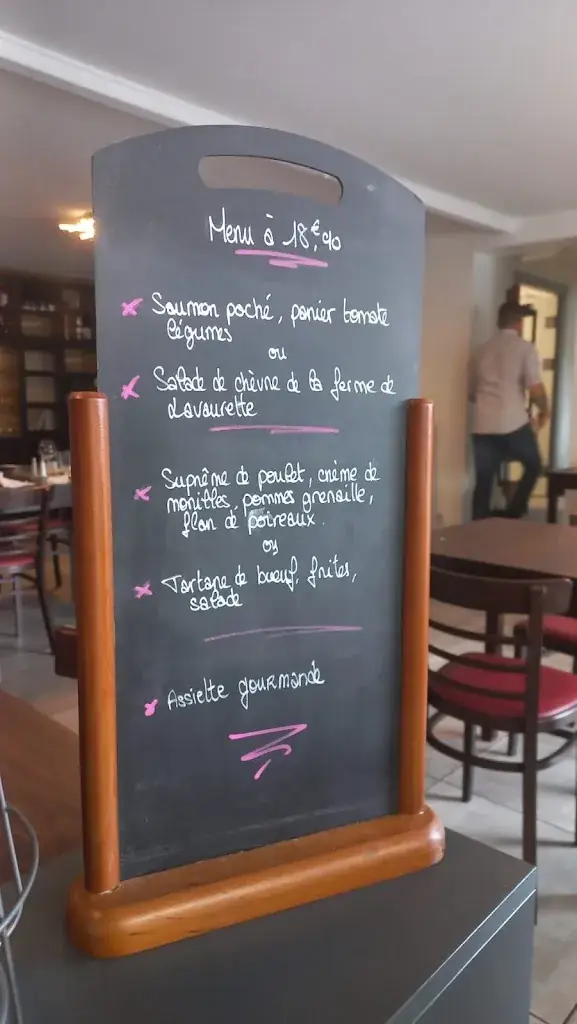 Menu à 18€,90
x Saumon poché, panier tomate
légumes
ou
x Salade de chèvre de la ferme de
Lavaurette
x Suprême de poulet, crème de
morilles, pommes grenaille,
flan de poireaux.
ou
x Tartare de bœuf, frites,
salade
x Assiette gourmande